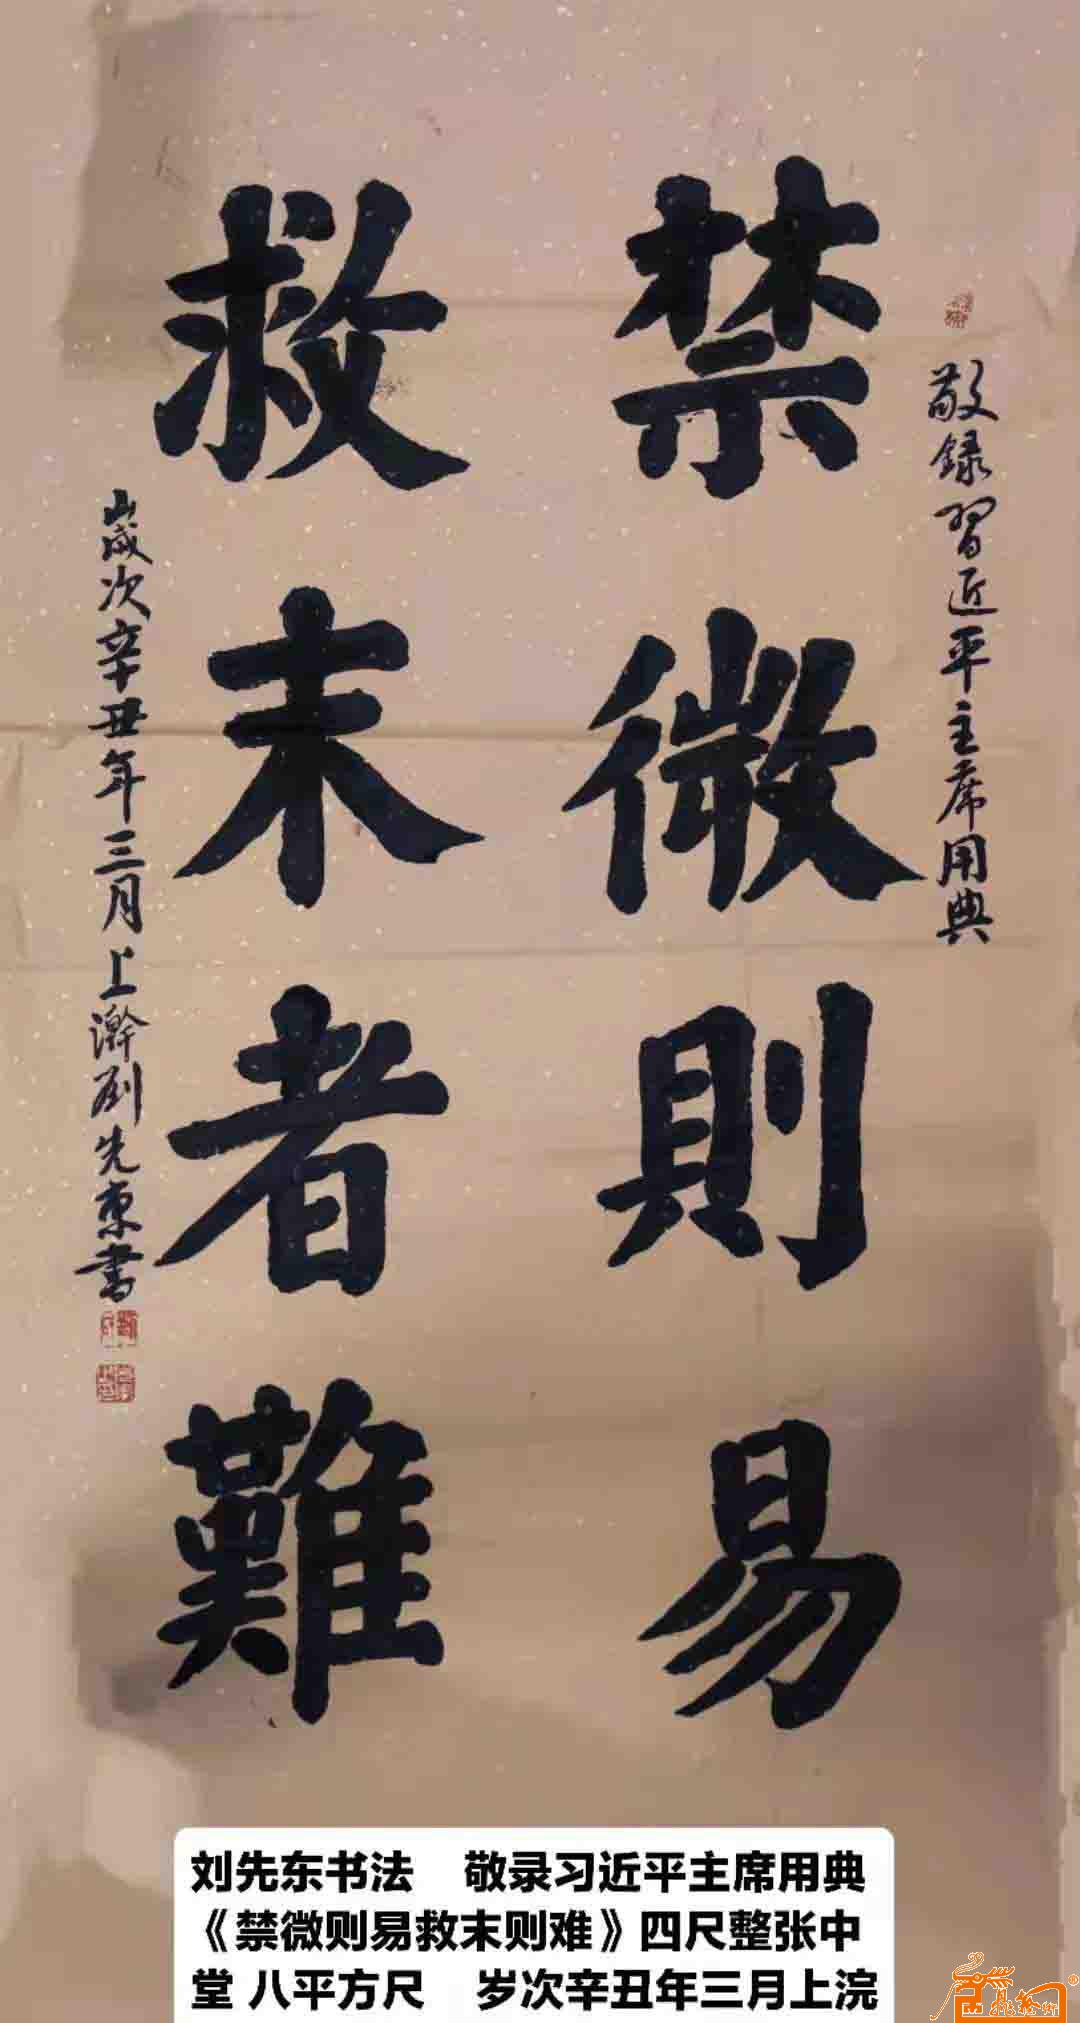 敬録習近平主席用典
禁微則易
救末者難
歲次辛丑年三月上澣劉先東書
刘先东书法 敬录习近平主席用典
《禁微则易救末则难》四尺整张中
堂 八平方尺 岁次辛丑年三月上浣